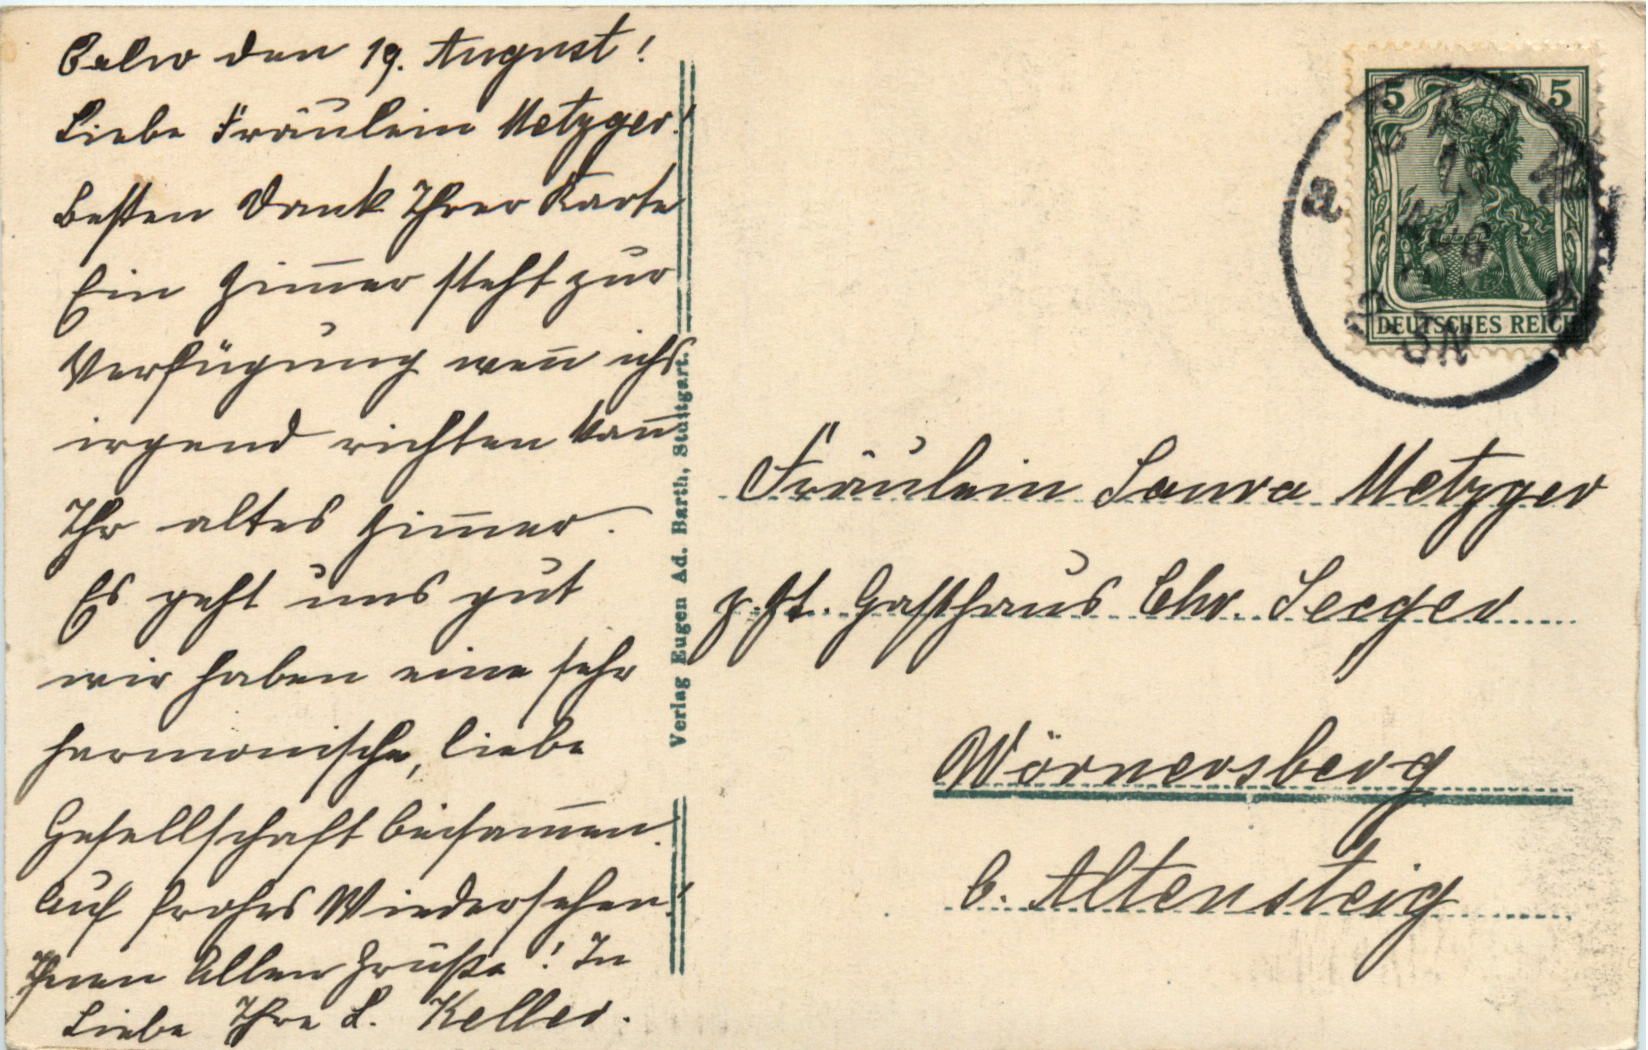 Calw den 19. August!
Liebe Fräulein Metzger!
Besten Dank Ihrer Karte
Ein Zim̅er steht zur
Verfügung wen̅ ichs
irgend richten kan̅
Ihr altes Zim̅er.
Es geht uns gut
wir haben eine sehr
harmonische, liebe
Gesellschaft beisam̅en.
Auf frohes Wiedersehen!
Ihnen Allen Grüße! In
Liebe Ihre L. Keller.
Verlag Eugen Ad. Barth, Stuttgart.
5 5
DEUTSCHES REICH
CALW
a
19
AUG
5-6 N
Fräulein Laura Metzger
z. Zt. Gasthaus Chr. Seeger
Wörnersberg
b. Altensteig